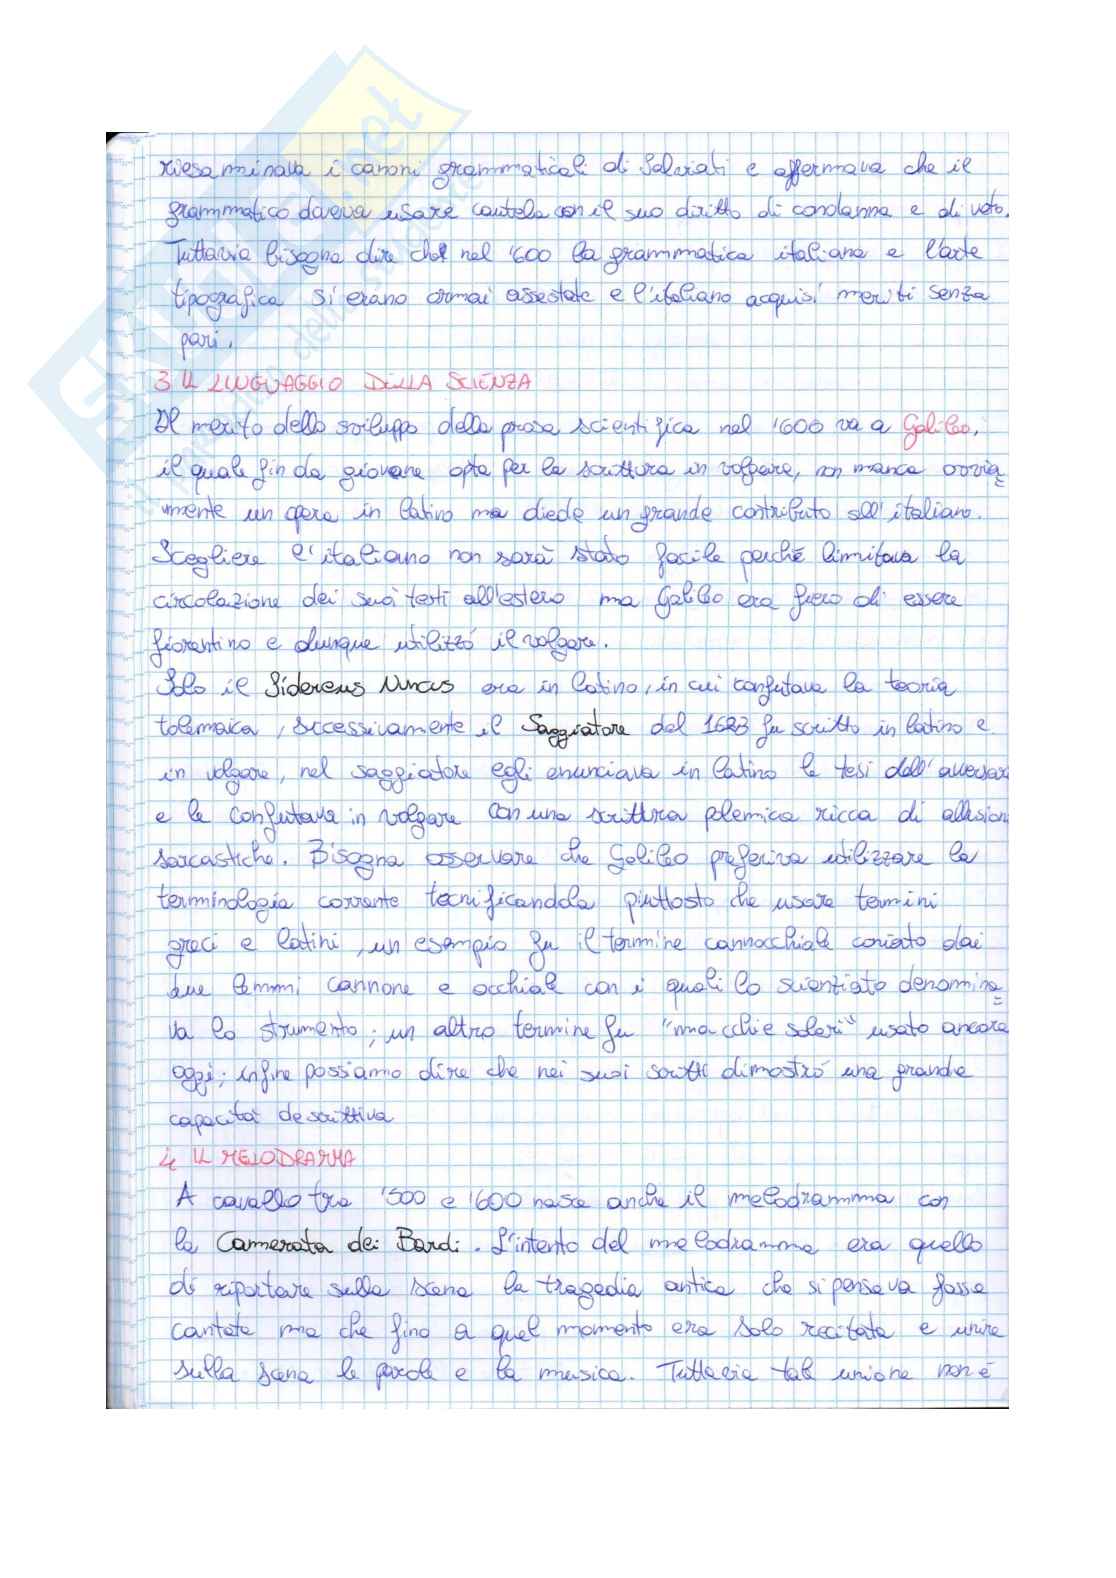 riesaminava i canoni grammaticali di Salviati e affermava che il
grammatico doveva usare cautela con il suo diritto di condanna e di veto.
Tuttavia bisogna dire che nel '600 la grammatica italiana e l'arte
tipografica si erano ormai assestate e l'italiano acquisì meriti senza
pari.
3 IL LINGUAGGIO DELLA SCIENZA
Il merito dello sviluppo della prosa scientifica nel '600 va a Galileo,
il quale fin da giovane opta per la scrittura in volgare, non manca ovvia=
mente un opera in latino ma diede un grande contributo all'italiano.
Scegliere l'italiano non sarà stato facile perché limitava la
circolazione dei suoi testi all'estero ma Galileo era fiero di essere
fiorentino e dunque utilizzó il volgare.
Solo il Sidereus Nuncus era in latino, in cui confutava la teoria
tolemaica, successivamente il Saggiatore del 1623 fu scritto in latino e
in volgare, nel saggiatore egli enunciava in latino le tesi dell'avversar
e le confutava in volgare con una scrittura polemica ricca di allusion
sarcastiche. Bisogna osservare che Galileo preferiva utilizzare la
terminologia corrente tecnificandola piuttosto che usare termini
greci e latini, un esempio fu il termine cannocchiale coniato dai
due lemmi cannone e occhiale con i quali lo scienziato denomina=
va lo strumento; un altro termine fu "macchie solari" usato ancora
oggi; infine possiamo dire che nei suoi scritti dimostró una grande
capacità descrittiva
4 IL MELODRAMMA
A cavallo tra '500 e '600 nasce anche il melodramma con
la Camerata dei Bardi. L'intento del melodramma era quello
di riportare sulla scena la tragedia antica che si pensava fosse
cantata ma che fino a quel momento era solo recitata e unire
sulla scena le parole e la musica. Tuttavia tale unione non è